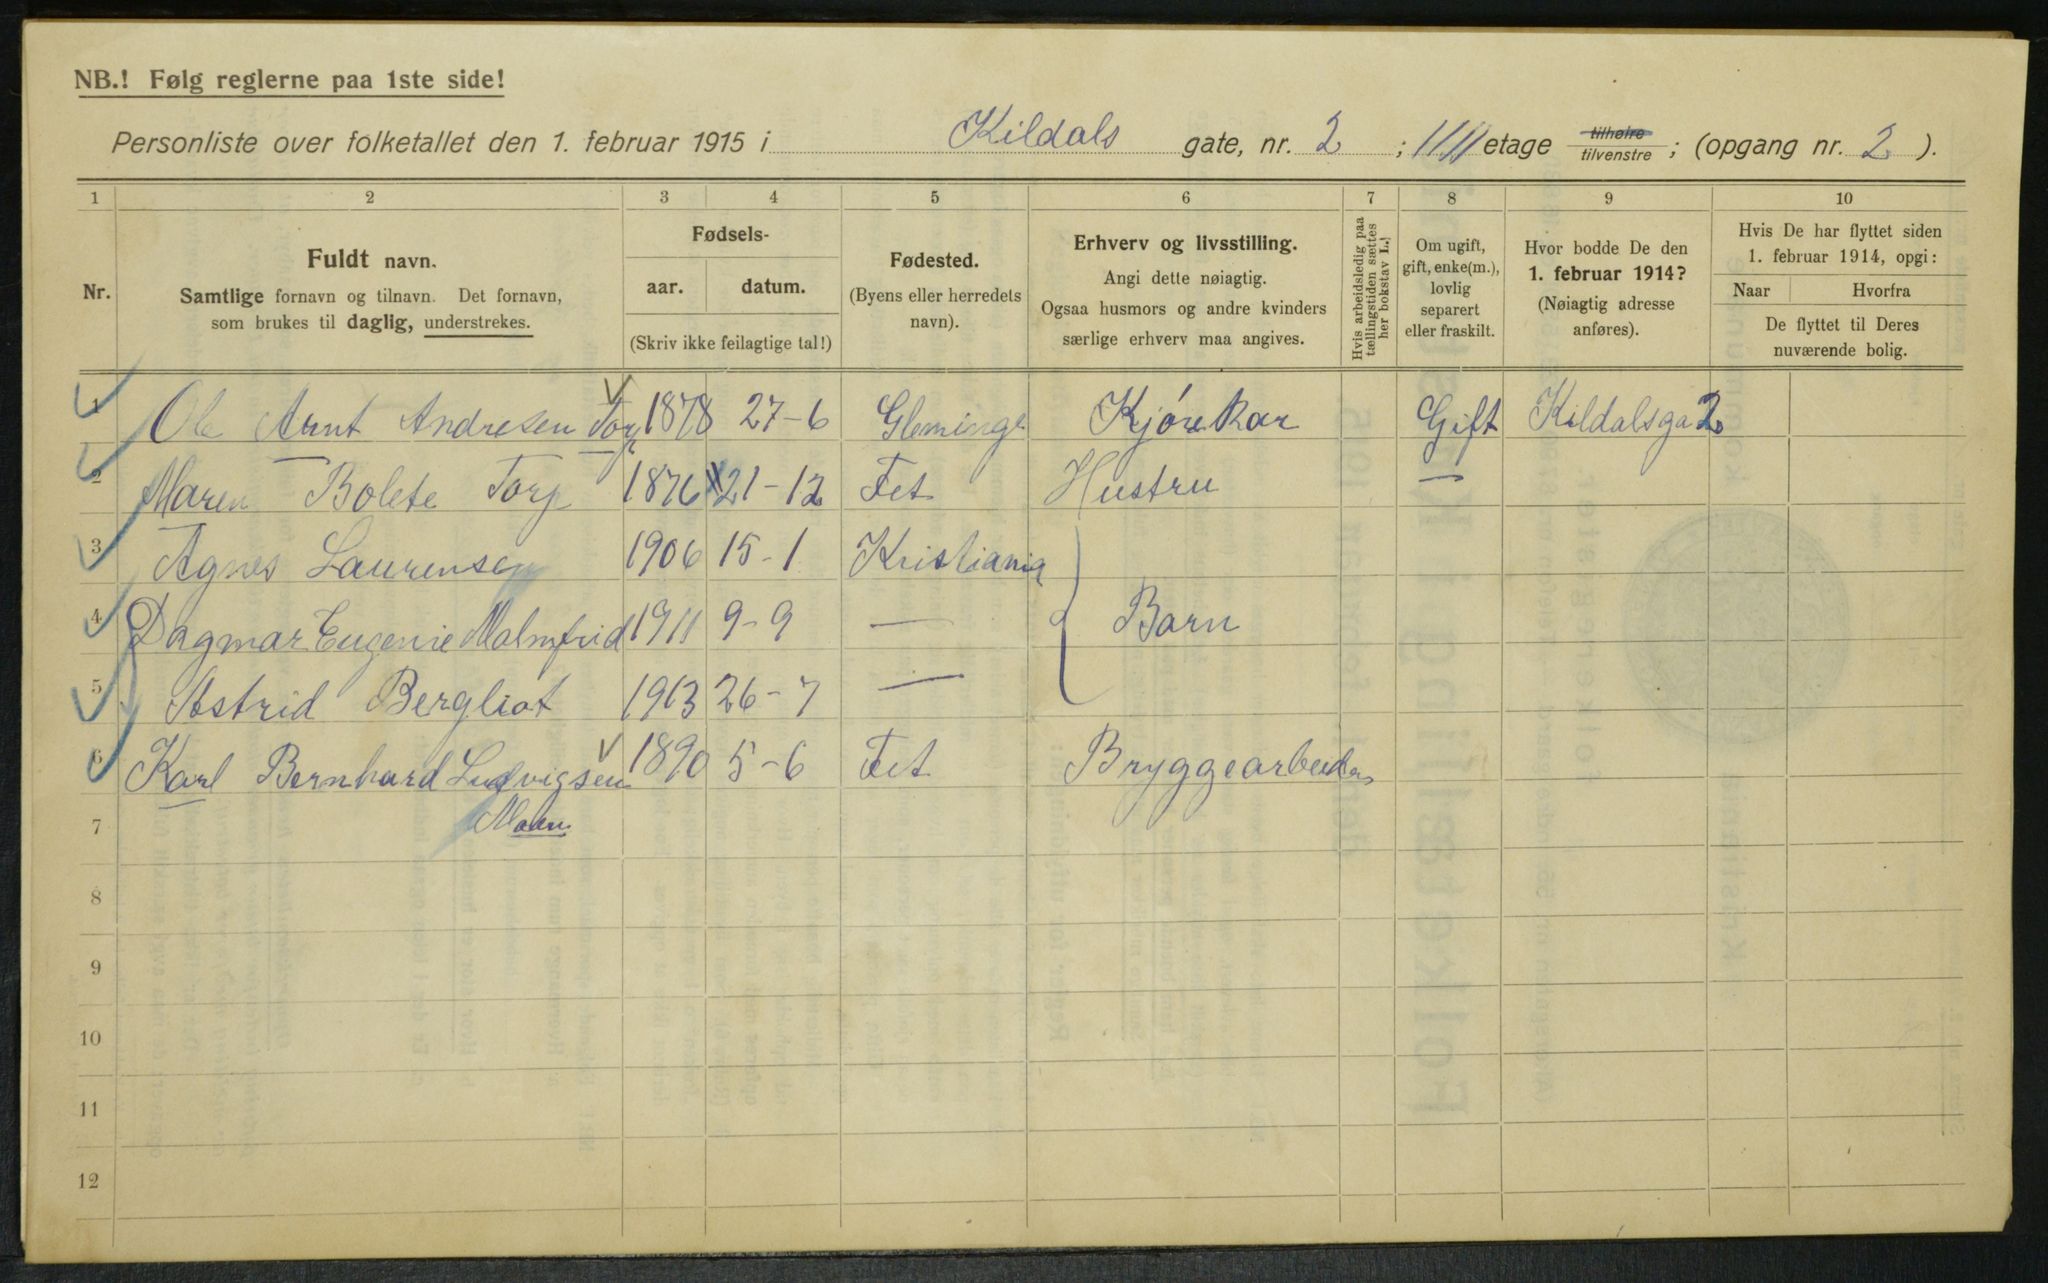 NB.! Følg reglerne paa 1ste side!
Personliste over folketallet den 1. februar 1915 i Kildals gate, nr. 2 ; etage tilhøire tilvenstre ; (opgang nr. 2 ).
1 2 3 4 5 6 7 8 9 10
Nr.
Fuldt navn.
Samtlige fornavn og tilnavn. Det fornavn,
som brukes til daglig, understrekes.
Fødsels-
aar. datum.
(Skriv ikke feilagtige tal!)
Fødested.
(Byens eller herredets
navn).
Erhverv og livsstilling.
Angi dette nøiagtig.
Ogsaa husmors og andre kvinders
særlige erhverv maa angives.
Hvis arbeidsledig paa
tællingstiden sættes
her bokstav L.!
Om ugift,
gift, enke(m.),
lovlig
separert
eller fraskilt.
Hvor bodde De den
1. februar 1914?
(Nøiagtig adresse
anføres).
Hvis De har flyttet siden
1. februar 1914, opgi:
Naar Hvorfra
De flyttet til Deres
nuværende bolig.
1 Ole Arnt Andresen Torp 1878 27-6 Gleminge Kjørekar Gift Kildalsga 2
2 Maren Bolete Torp 1876 21-12 Fet Hustru —
3 Agnes Laurense 1906 15-1 Kristiania
4 Dagmar Eugenie Malmfrid 1911 9-9 — Barn
5 Astrid Bergliot 1913 26-7 —
6 Karl Bernhard Ludvigsen 1890 5-6 Fet Bryggearbeider
7 Moen
8
9
10
11
12